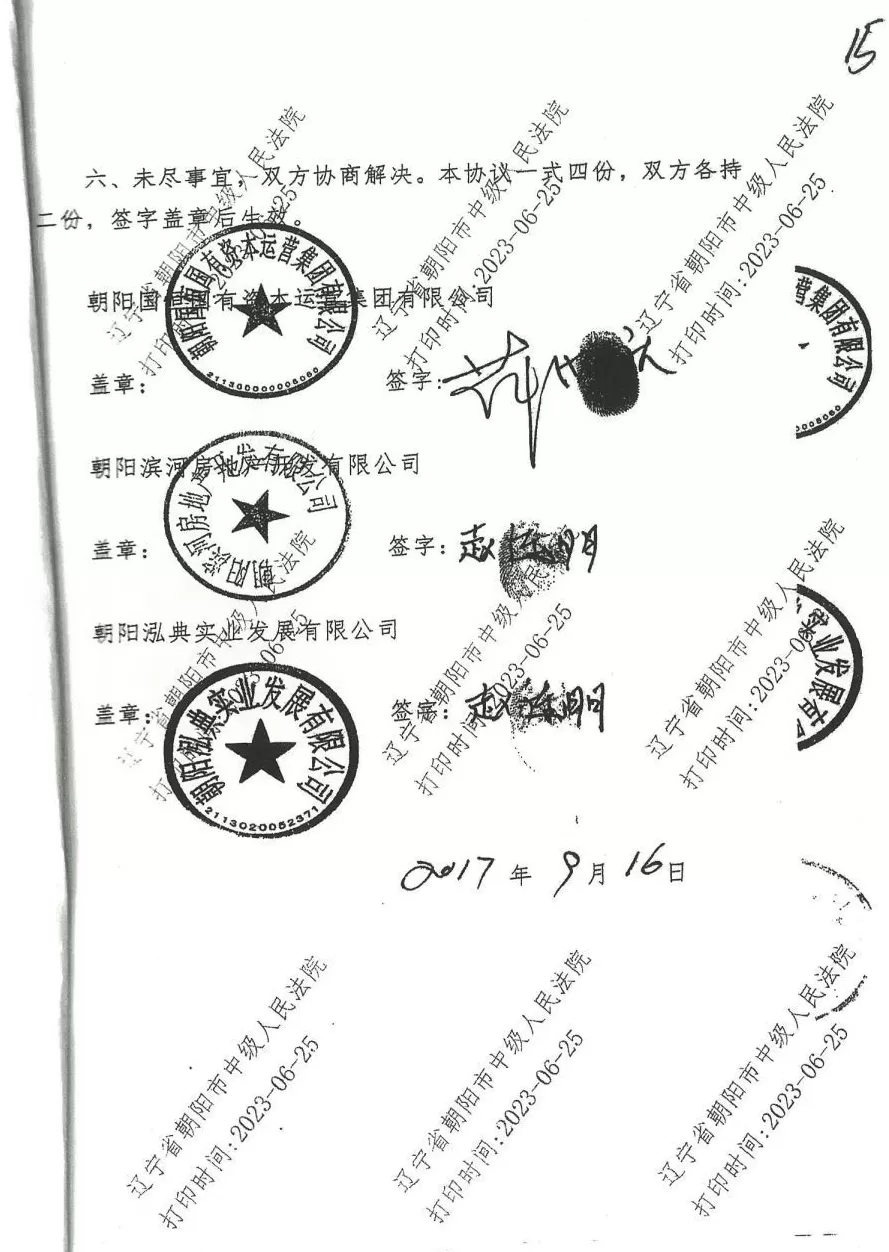 15
六、未尽事宜，双方协商解决。本协议一式四份，双方各持
二份，签字盖章后生效。
朝阳国恒国有资本运营集团有限公司
盖章：
签字：
朝阳国恒国有资本运营集团有限公司
2113000006060
营集团有限公司
朝阳滨河房地产开发有限公司
盖章：
签字：赵连明
朝阳滨河房地产开发有限公司
朝阳泓典实业发展有限公司
盖章：
签字：赵连明
朝阳泓典实业发展有限公司
2113020052371
实业发展有
2017年9月16日
辽宁省朝阳市中级人民法院
打印时间:2023-06-25
辽宁省朝阳市中级人民法院
打印时间:2023-06-25
辽宁省朝阳市中级人民法院
打印时间:2023-06-25
辽宁省朝阳市中级人民法院
打印时间:2023-06-25
辽宁省朝阳市中级人民法院
打印时间:2023-06-25
辽宁省朝阳市中级人民法院
打印时间:2023-06-25
辽宁省朝阳市中级人民法院
打印时间:2023-06-25
辽宁省朝阳市中级人民法院
打印时间:2023-06-25
辽宁省朝阳市中级人民法院
打印时间:2023-06-25